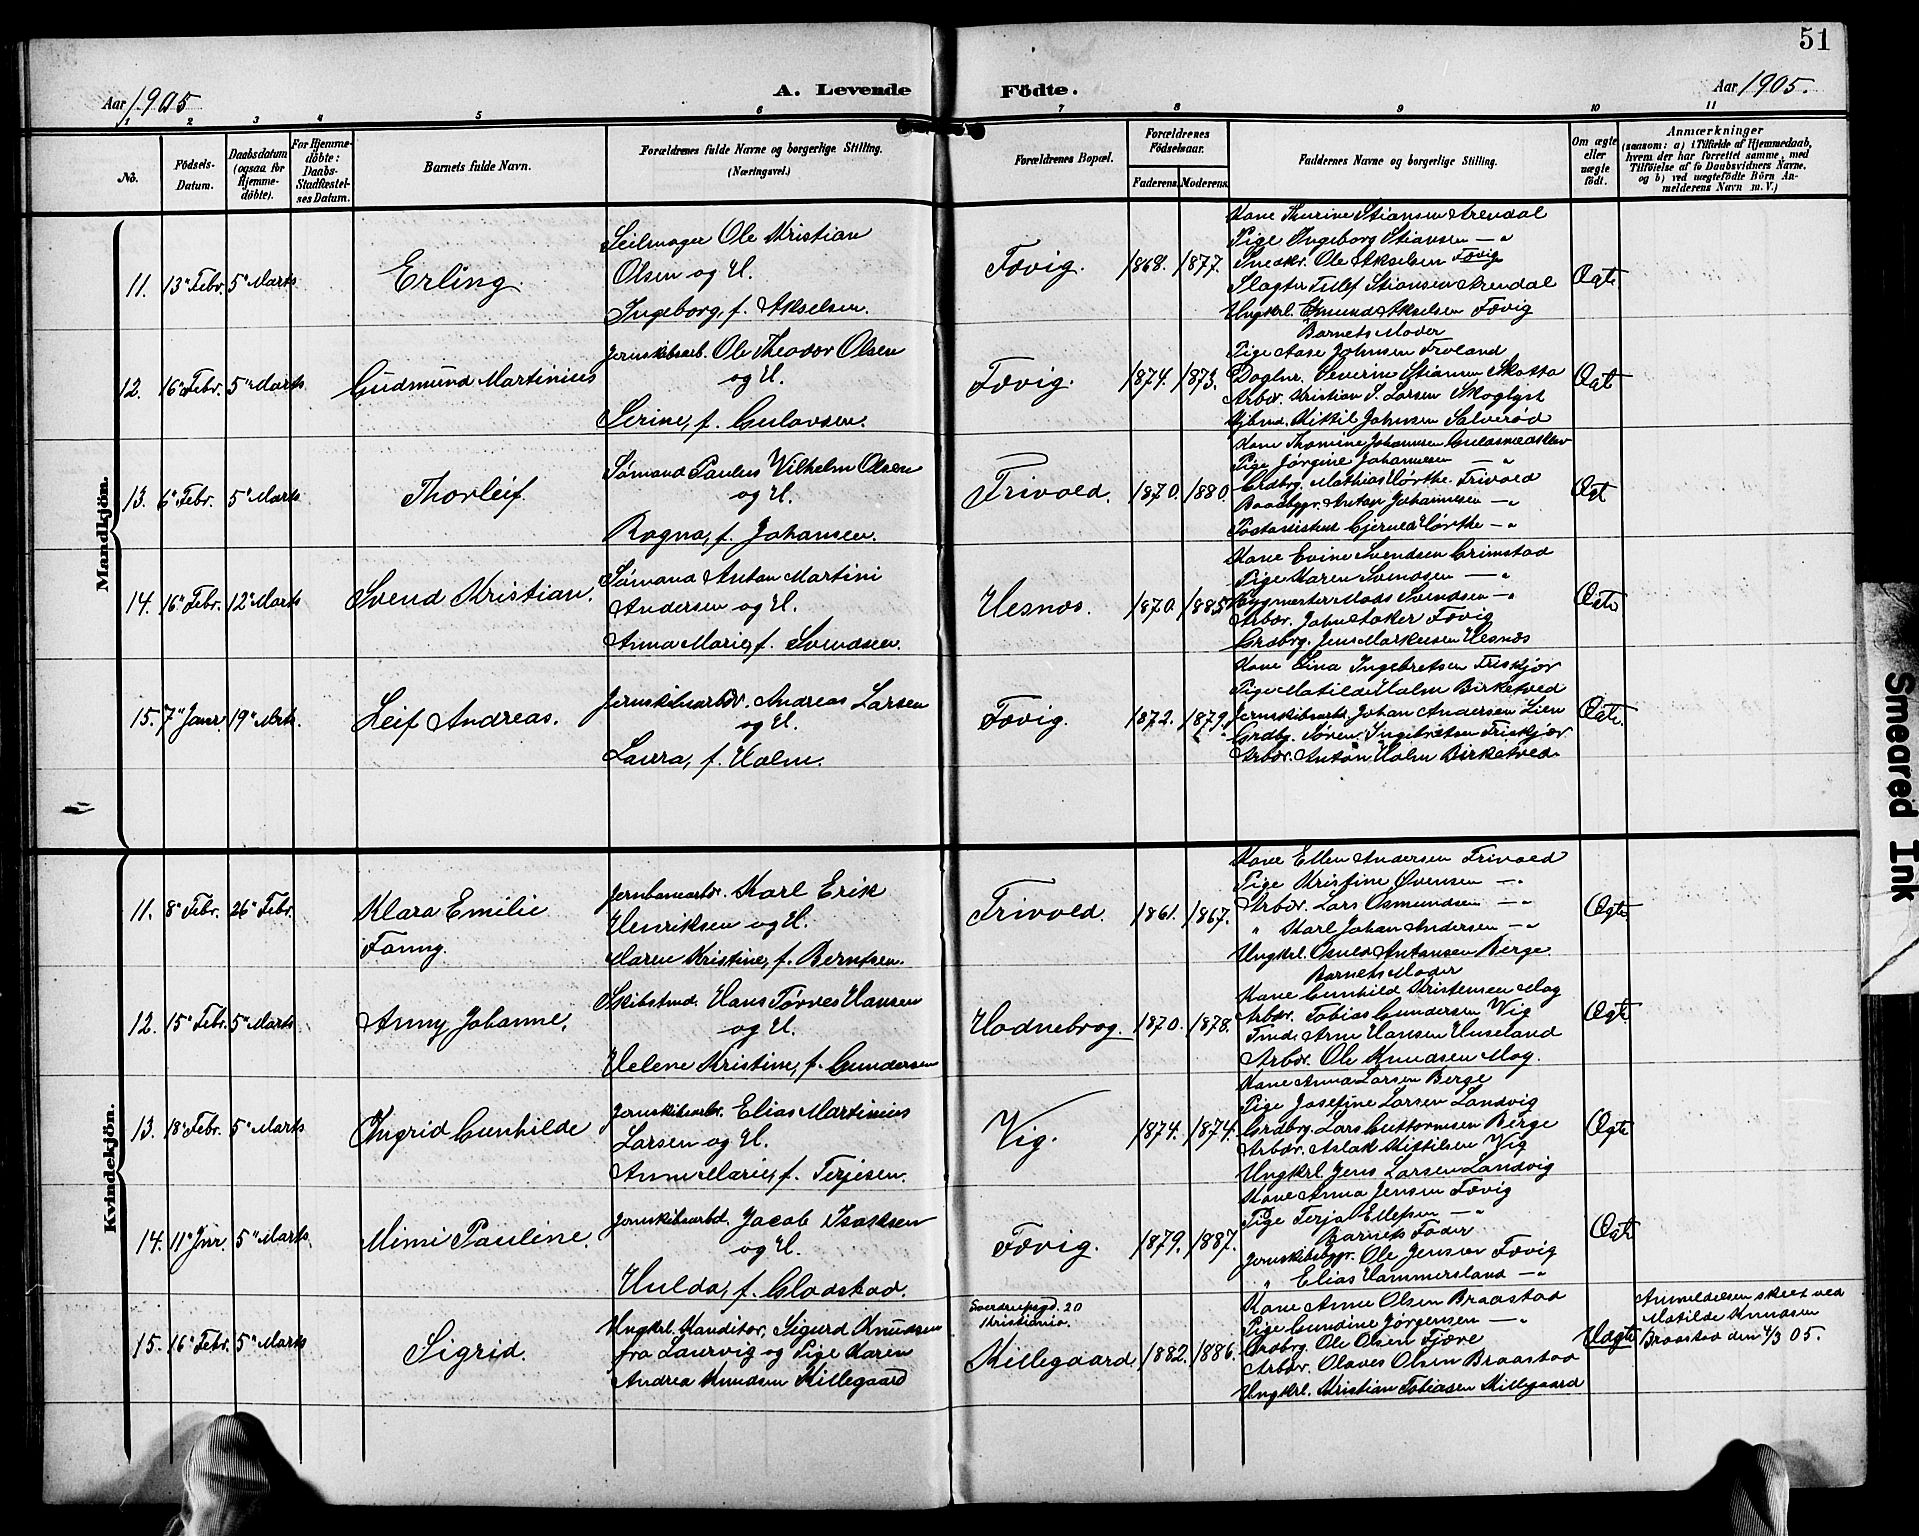 51
Aar 1905
A. Levende
Födte.
Aar 1905.
1 2 3 4 5 6 7 8 9 10 11
No.
Födsels-
Datum.
Daabsdatum
(ogsaa for
Hjemme-
döbte).
For Hjemme-
döbte:
Daabs-
Stadfæstel-
ses Datum.
Barnets fulde Navn.
Forældrenes fulde Navne og borgerlige Stilling.
(Næringsvei.)
Forældrenes Bopæl.
Forældrenes
Födselsaar.
Faderens.
Moderens.
Faddernes Navne og borgerlige Stilling.
Om ægte
eller
uægte
födt.
Anmærkninger
(saasom: a) i Tilfælde af Hjemmedaab,
hvem der har forrettet samme, med
Tilföielse af to Daabsvidners Navne.
og b) ved uægtefödte Börn An-
melderens Navn m. V.)
Mandkjön.
11. 13de Febr. 5te Marts
Erling.
Seilmager Ole Kristian
Olsen og H.
Ingeborg, f. Akselsen.
Fævig.
1868. 1877.
Kone Thurine Stiansen Arendal
Pige Ingeborg Stiansen — "
Snedkr. Ole Akselsen Fævig
Slagter Tellef Stiansen Arendal
Ungkrl. Edmund Akselsen Fævig
Ægte
12. 16de Febr. 5te Marts
Gudmund Martinius
Jernskibsarb. Ole Theodor Olsen
og H.
Serine, f. Gulovsen.
Fævig.
1874. 1873.
Barnets Moder
Pige Aase Johnsen Froland
Daglnr. Severin Stiansen Skotta
Arbdr. Kristian S. Larsen Skoglyst
Kittil Johnsen Salverød
Ægte
13. 6te Febr. 5te Marts
Thorleif
Sømand Paulus Vilhelm Olsen
og H.
Ragna, f. Johansen.
Frivold.
1870. 1880.
Kone Thomine Johannesen
Pige Jørgine Johannesen — "
Grdbrg. Mathias Hørthe Frivold
Baadbygr. Anton Johannesen — "
Hørthe — "
Ægt
14. 16de Febr. 12te Marts
Svend Kristian.
Sømand Anton Martini
Andersen og H.
Anna Marie, f. Svendsen.
Hesnæs.
1870. 1885.
Kone Evine Svendsen Grimstad
Pige Karen Svendsen — "
Bygmester Mads Svendsen — "
Arbdr. John Aaker Fævig
Grdbrg. Jens Markussen Hesnæs
Ægte
15. 7de Janr. 19de Mrts.
Leif Andreas.
Jernskibsarbdr. Andreas Larsen
og H.
Laura, f. Holm.
Fævig.
1872. 1879.
Kone Lina Ingebretsen Friskjær
Pige Matilde Holm Birketved
Jernskibsarb. Johan Andersen Lien
Grdbg. Søren Ingebretsen Friskjær
Arbdr. Anton Holm Birketved
Ægte.
Kvindekjön.
11. 8de Febr. 26de Febr.
Klara Emilie
Fanny.
Jernbanearbdr. Karl Erik
Henriksen og H.
Maren Kristine, f. Berntsen.
Frivold.
1861. 1867.
Kone Ellen Andersen Frivold
Pige Kristine Evensen — "
Arbdr. Lars Osmundsen — "
" Karl Johan Andersen — "
Ungkrl. Antonsen Berge.
Ægte
12. 15de Febr. 5te Marts
Anny Johanne.
Skibstmd. Hans Tørres Hansen
og H.
Helene Kristine, f. Gundersen
Hodnebrog.
1870. 1878.
Barnets Moder
Kone Gunhild Kristensen Mog
Arbdr. Tobias Gundersen Vig
Tmd. Arne Hansen Huseland
Arbdr. Ole Knudsen Mog.
Ægte
13. 18de Febr. 5te Marts
Ingrid Gunhilde
Jernskibsarbr. Elias Martinius
Larsen og H.
Anne Marie, f. Terjesen.
Vig.
1874. 1874.
Kone Anna Larsen Berge
Pige Josefine Larsen Landvig
Grdbrg. Lars Guttormsen Berge
Arbdr. Aslak Kittilsen Vig
Ungkrl. Jens Larsen Landvig
Ægte
14. 11te Jnr. 5te Marts
Mimi Pauline.
Jernskibsarbd. Jacob Isaksen
og H.
Hulda, f. Gladstad.
Fævig.
1879. 1887.
Kone Anna Jensen Fævig
Pige Terja Ellefsen — "
Barnets Fader
Jernskibsbygr. Ole Jensen Fævig
" Elias Hammersland — "
Ægte
15. 16de Febr. 5te Marts
Sigrid.
Ungkrl. Konditor, Sigurd Knudsen
fra Laurvig og Pige Karen
Andrea Knudsen Killegaard
Sverdrupsgd. 20
Kristiania.
Killegaard.
1882. 1886.
Kone Anne Olsen Braastad
Pige Gundine Jørgensen — "
Grdbrg. Ole Olsen Fjære
Arbdr. Olaves Olsen Braastad
Ungkrl. Kristian Tobiasen Killegaard
Uægte
Anmeldelsen skeet ved
Matilde Knudsen
Braastad den 4/3 05.
Smeared Ink